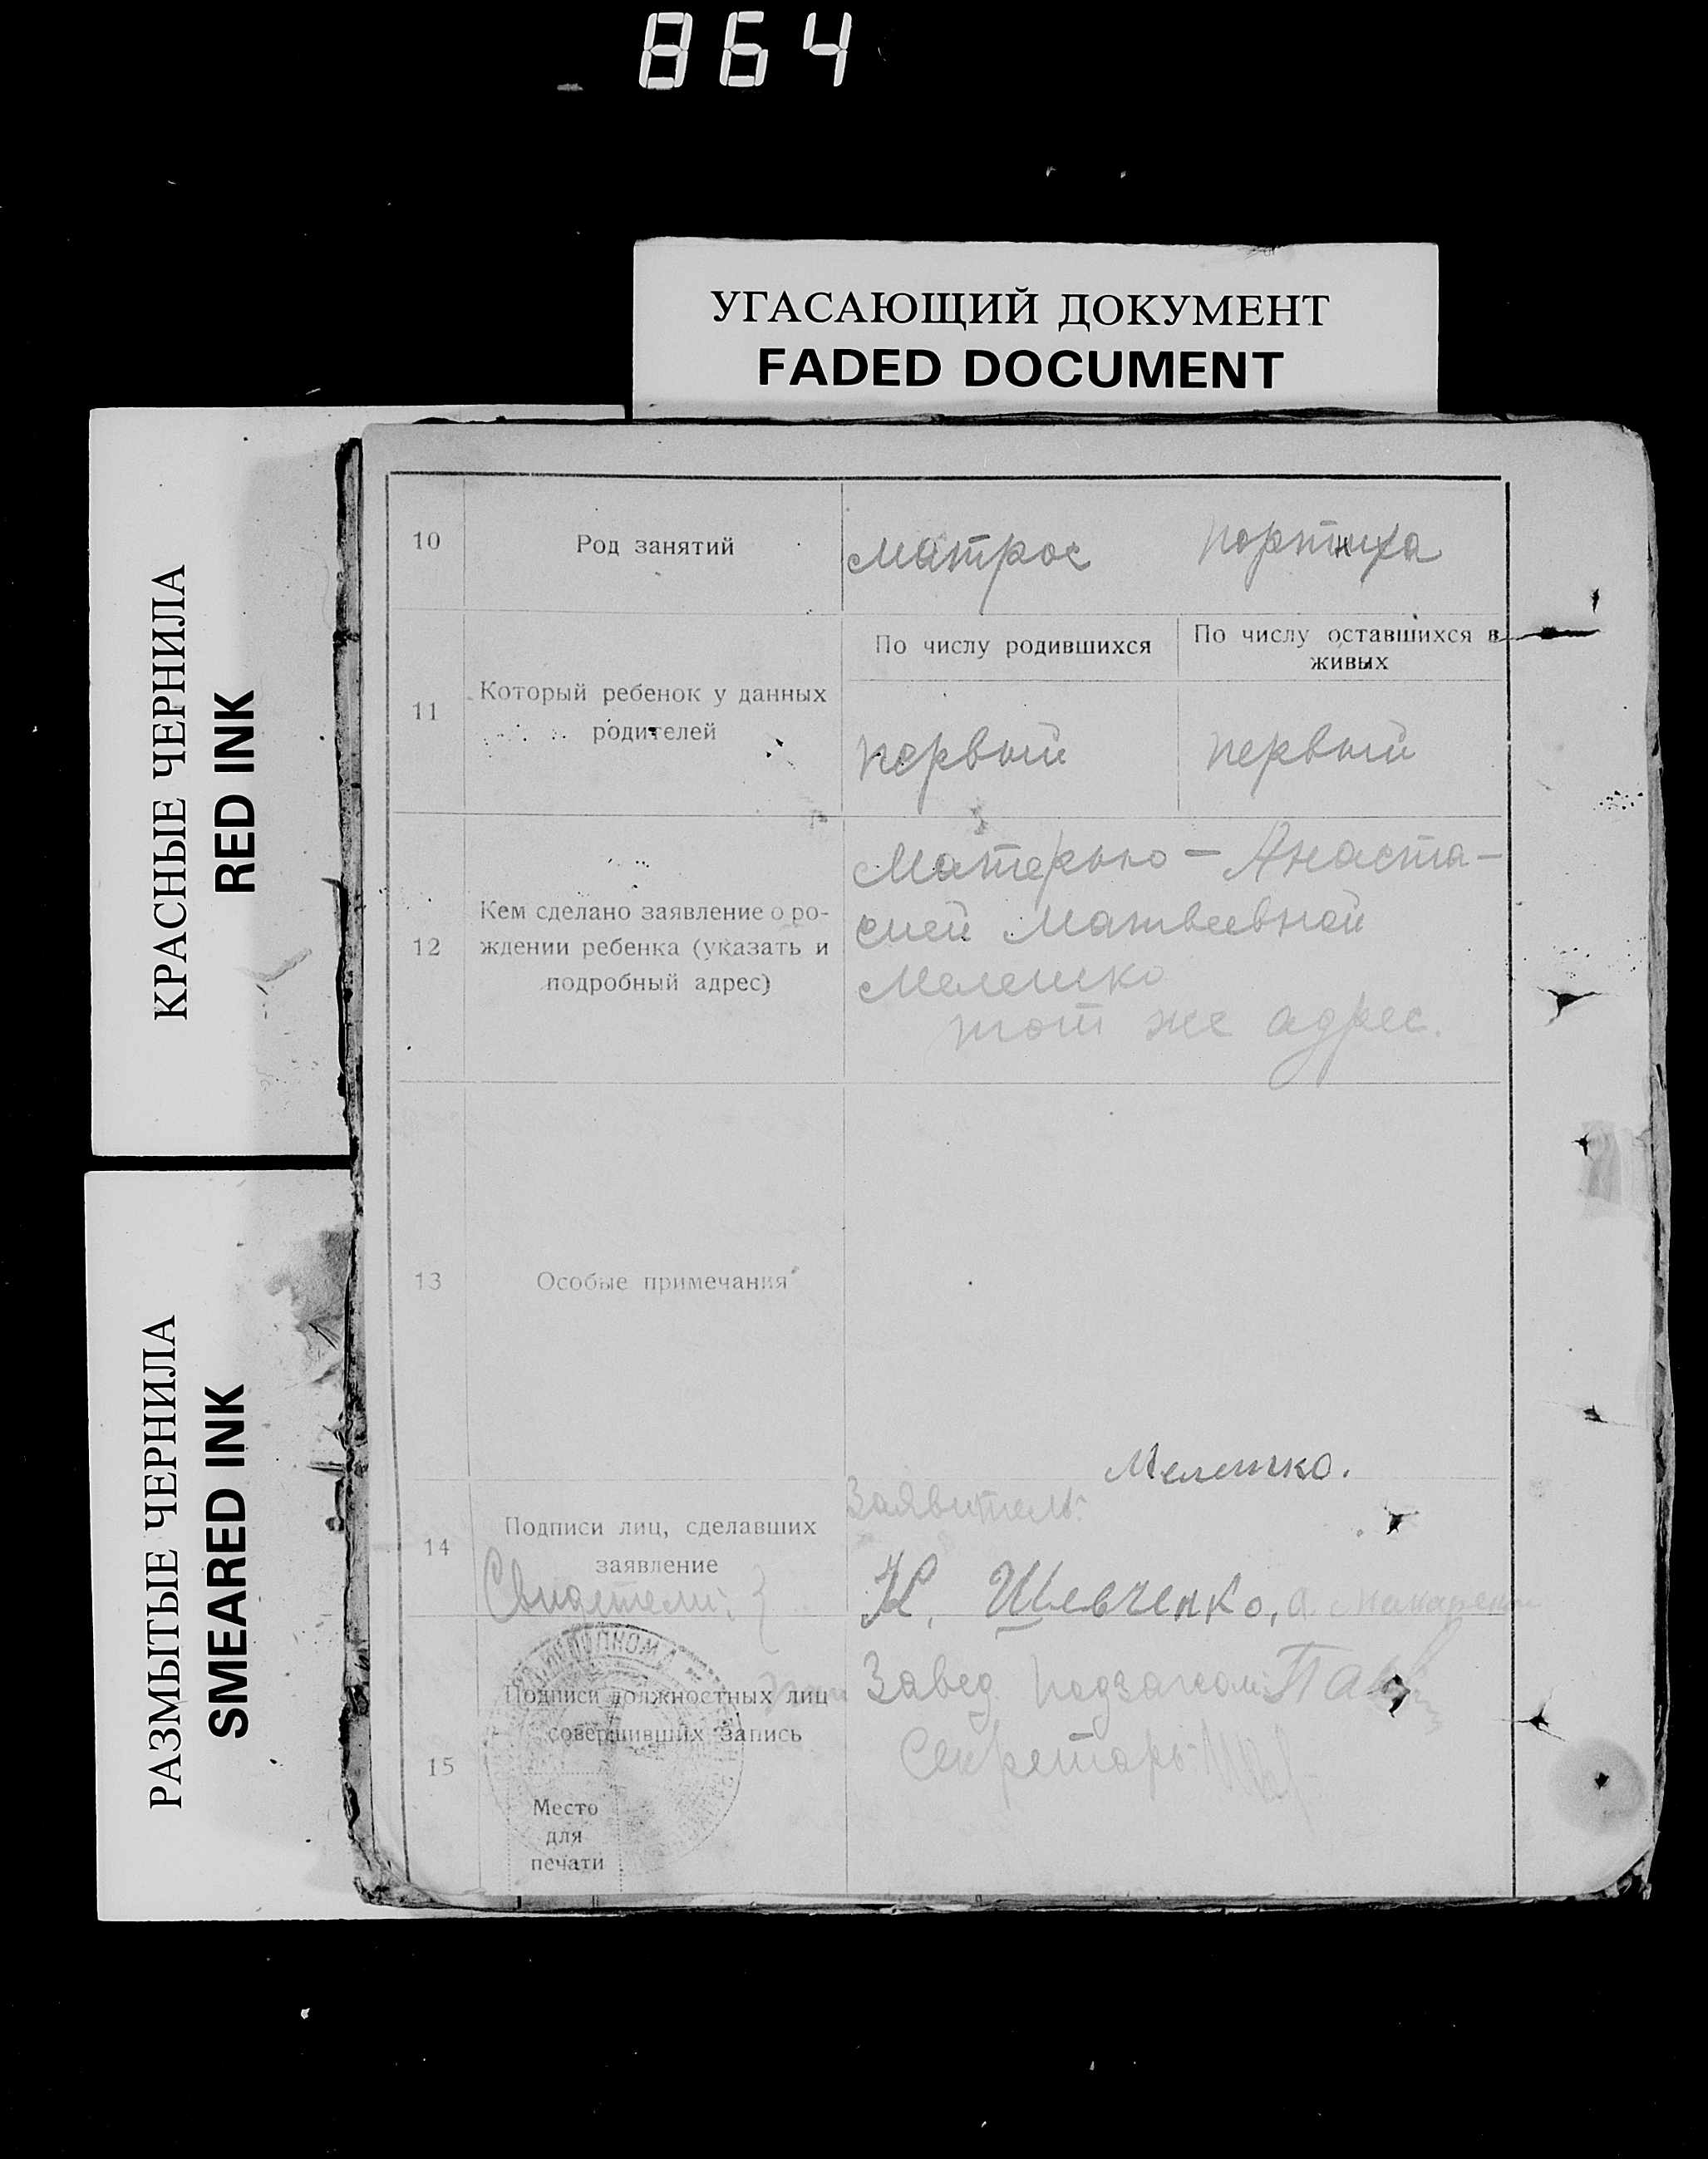 864
УГАСАЮЩИЙ ДОКУМЕНТ
FADED DOCUMENT
КРАСНЫЕ ЧЕРНИЛА
RED INK
РАЗМЫТЫЕ ЧЕРНИЛА
SMEARED INK
10 Род занятий матрос портниха
11 Который ребенок у данных
родителей
По числу родившихся
По числу оставшихся в
живых
первый первый
12 Кем сделано заявление о ро-
ждении ребенка (указать и
подробный адрес)
Матерью – Анаста-
сией Матвеевной
Мелешко
тот же адрес.
13 Особые примечания
Мелешко.
14 Подписи лиц, сделавших
заявление
Заявитель:
Свидетели: К. Шевченко, а.
15 Подписи должностных лиц
совершивших запись
Завед. подзагсом
Секретарь
Место
для
печати